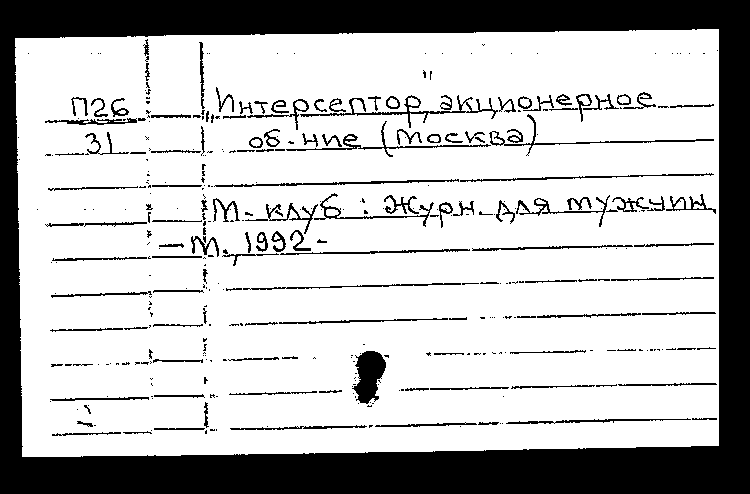 П26
31
„Интерсептор", акционерное
об-ние (Москва)
М-клуб : Журн. для мужчин.
— М., 1992 -